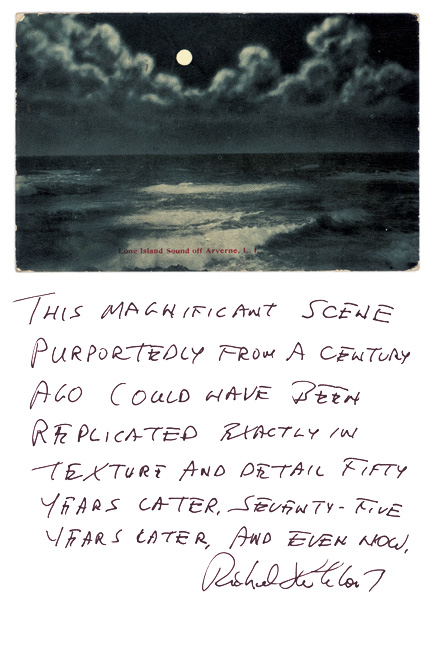 Long Island Sound off Arverne, L. I.
THIS MAGNIFICANT SCENE
PURPORTEDLY FROM A CENTURY
AGO COULD HAVE BEEN
REPLICATED EXACTLY IN
TEXTURE AND DETAIL FIFTY
YEARS LATER, SEVENTY-FIVE
YEARS LATER, AND EVEN NOW.
Richard